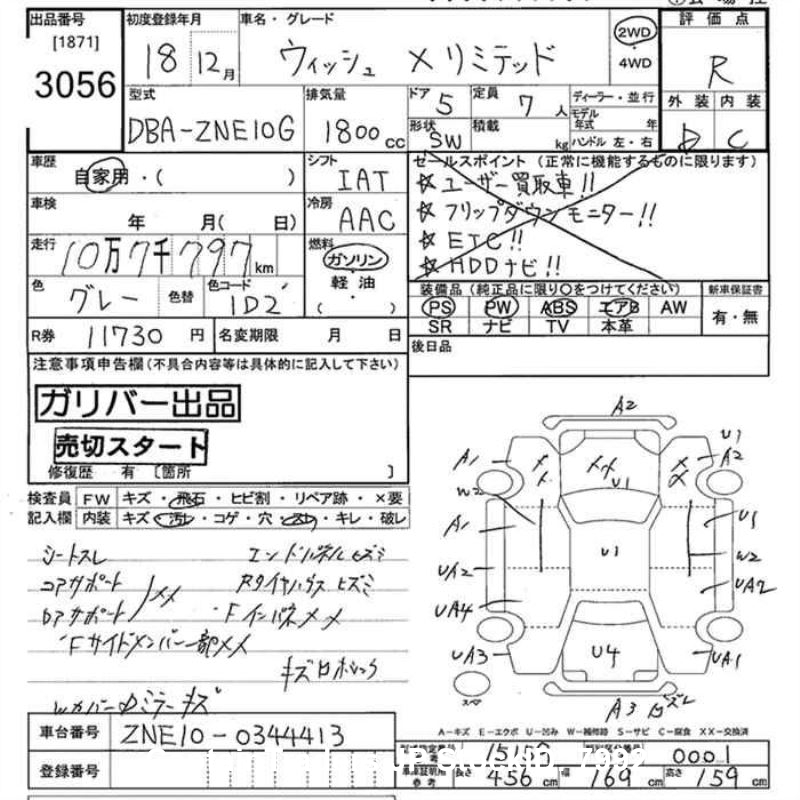 出品番号
[1871]
3056
初度登録年月
18 12月
車名・グレード
ウィッシュ X リミテッド
2WD
4WD
評価点
R
外装 内装
D C
型式
DBA-ZNE10G
排気量
1800cc
ドア 5
定員 7人
形状 SW
積載 kg
ディーラー・並行
モデル年式 年
ハンドル 左・右
車歴
自家用・( )
シフト
IAT
車検
年 月( 日)
冷房
AAC
走行
10万7千797km
燃料
ガソリン
軽油
( )
色
グレー
色替
色コード
1D2
R券 11730円
名変期限 月 日
セールスポイント (正常に機能するものに限ります)
☆ユーザー買取車!!
☆フリップダウンモニター!!
☆ETC!!
☆HDDナビ!!
装備品(純正品に限り○をつけてください)
新車保証書
PS PW ABS エアB AW
SR ナビ TV 本革
有・無
後日品
注意事項申告欄(不具合内容等は具体的に記入して下さい)
ガリバー出品
売切スタート
修復歴 有 〔箇所 〕
検査員 FW キズ・飛石・ヒビ割・リペア跡・×要
記入欄 内装 キズ・汚れ・コゲ・穴・スレ・キレ・破レ
シートスレ
エンドパネルヒズミ
コアサポート
Rタイヤハウスヒズミ
Fインパネメメ
Fサイドメンバー一部メメ
A2
U1
A1
A2
XX
U1
W2
A1
U1
U1
W2
UA2
UA2
UA4
UA3
U4
UA1
スペア
A3
A-キズ E-エクボ U-凹み W-補修跡 S-サビ C-腐食 XX-交換済
車台番号 ZNE10-0344413
登録番号
0001
長さ 456cm 幅 169cm 高さ 159cm